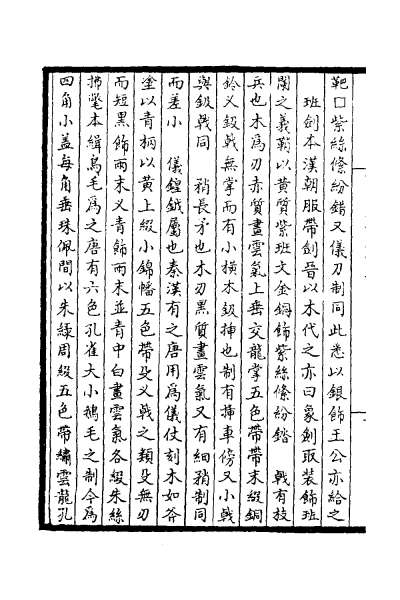 靶口紫絲絛紛錯又儀刀制同此悉以銀飾王公亦給之
班劍本漢朝服帶劍晉以木代之亦曰象劍取裝飾班
闌之義鞘以黃質紫班文金銅飾紫絲絛紛錔　戟有枝
兵也木為刃赤質畫雲氣上垂交龍掌五色帶帶末綴銅
鈴又鈒戟無掌而有小橫木鈒揷也制有揷車傍又小戟
與鈒戟同　矟長矛也木刃黑質畫雲氣又有細矟制同
而差小　儀鍠鉞屬也秦漢有之唐用為儀仗刻木如斧
塗以青柄以黃上綴小錦幡五色帶殳又戟之類殳無刃
而短黑飾兩末叉青飾兩末並青中白畫雲氣各綴朱絲
拂氅本緝鳥毛為之唐有六色孔雀大小鵝毛之制今為
四角小盖每角垂珠佩間以朱綠周綴五色帶繡雲龍孔